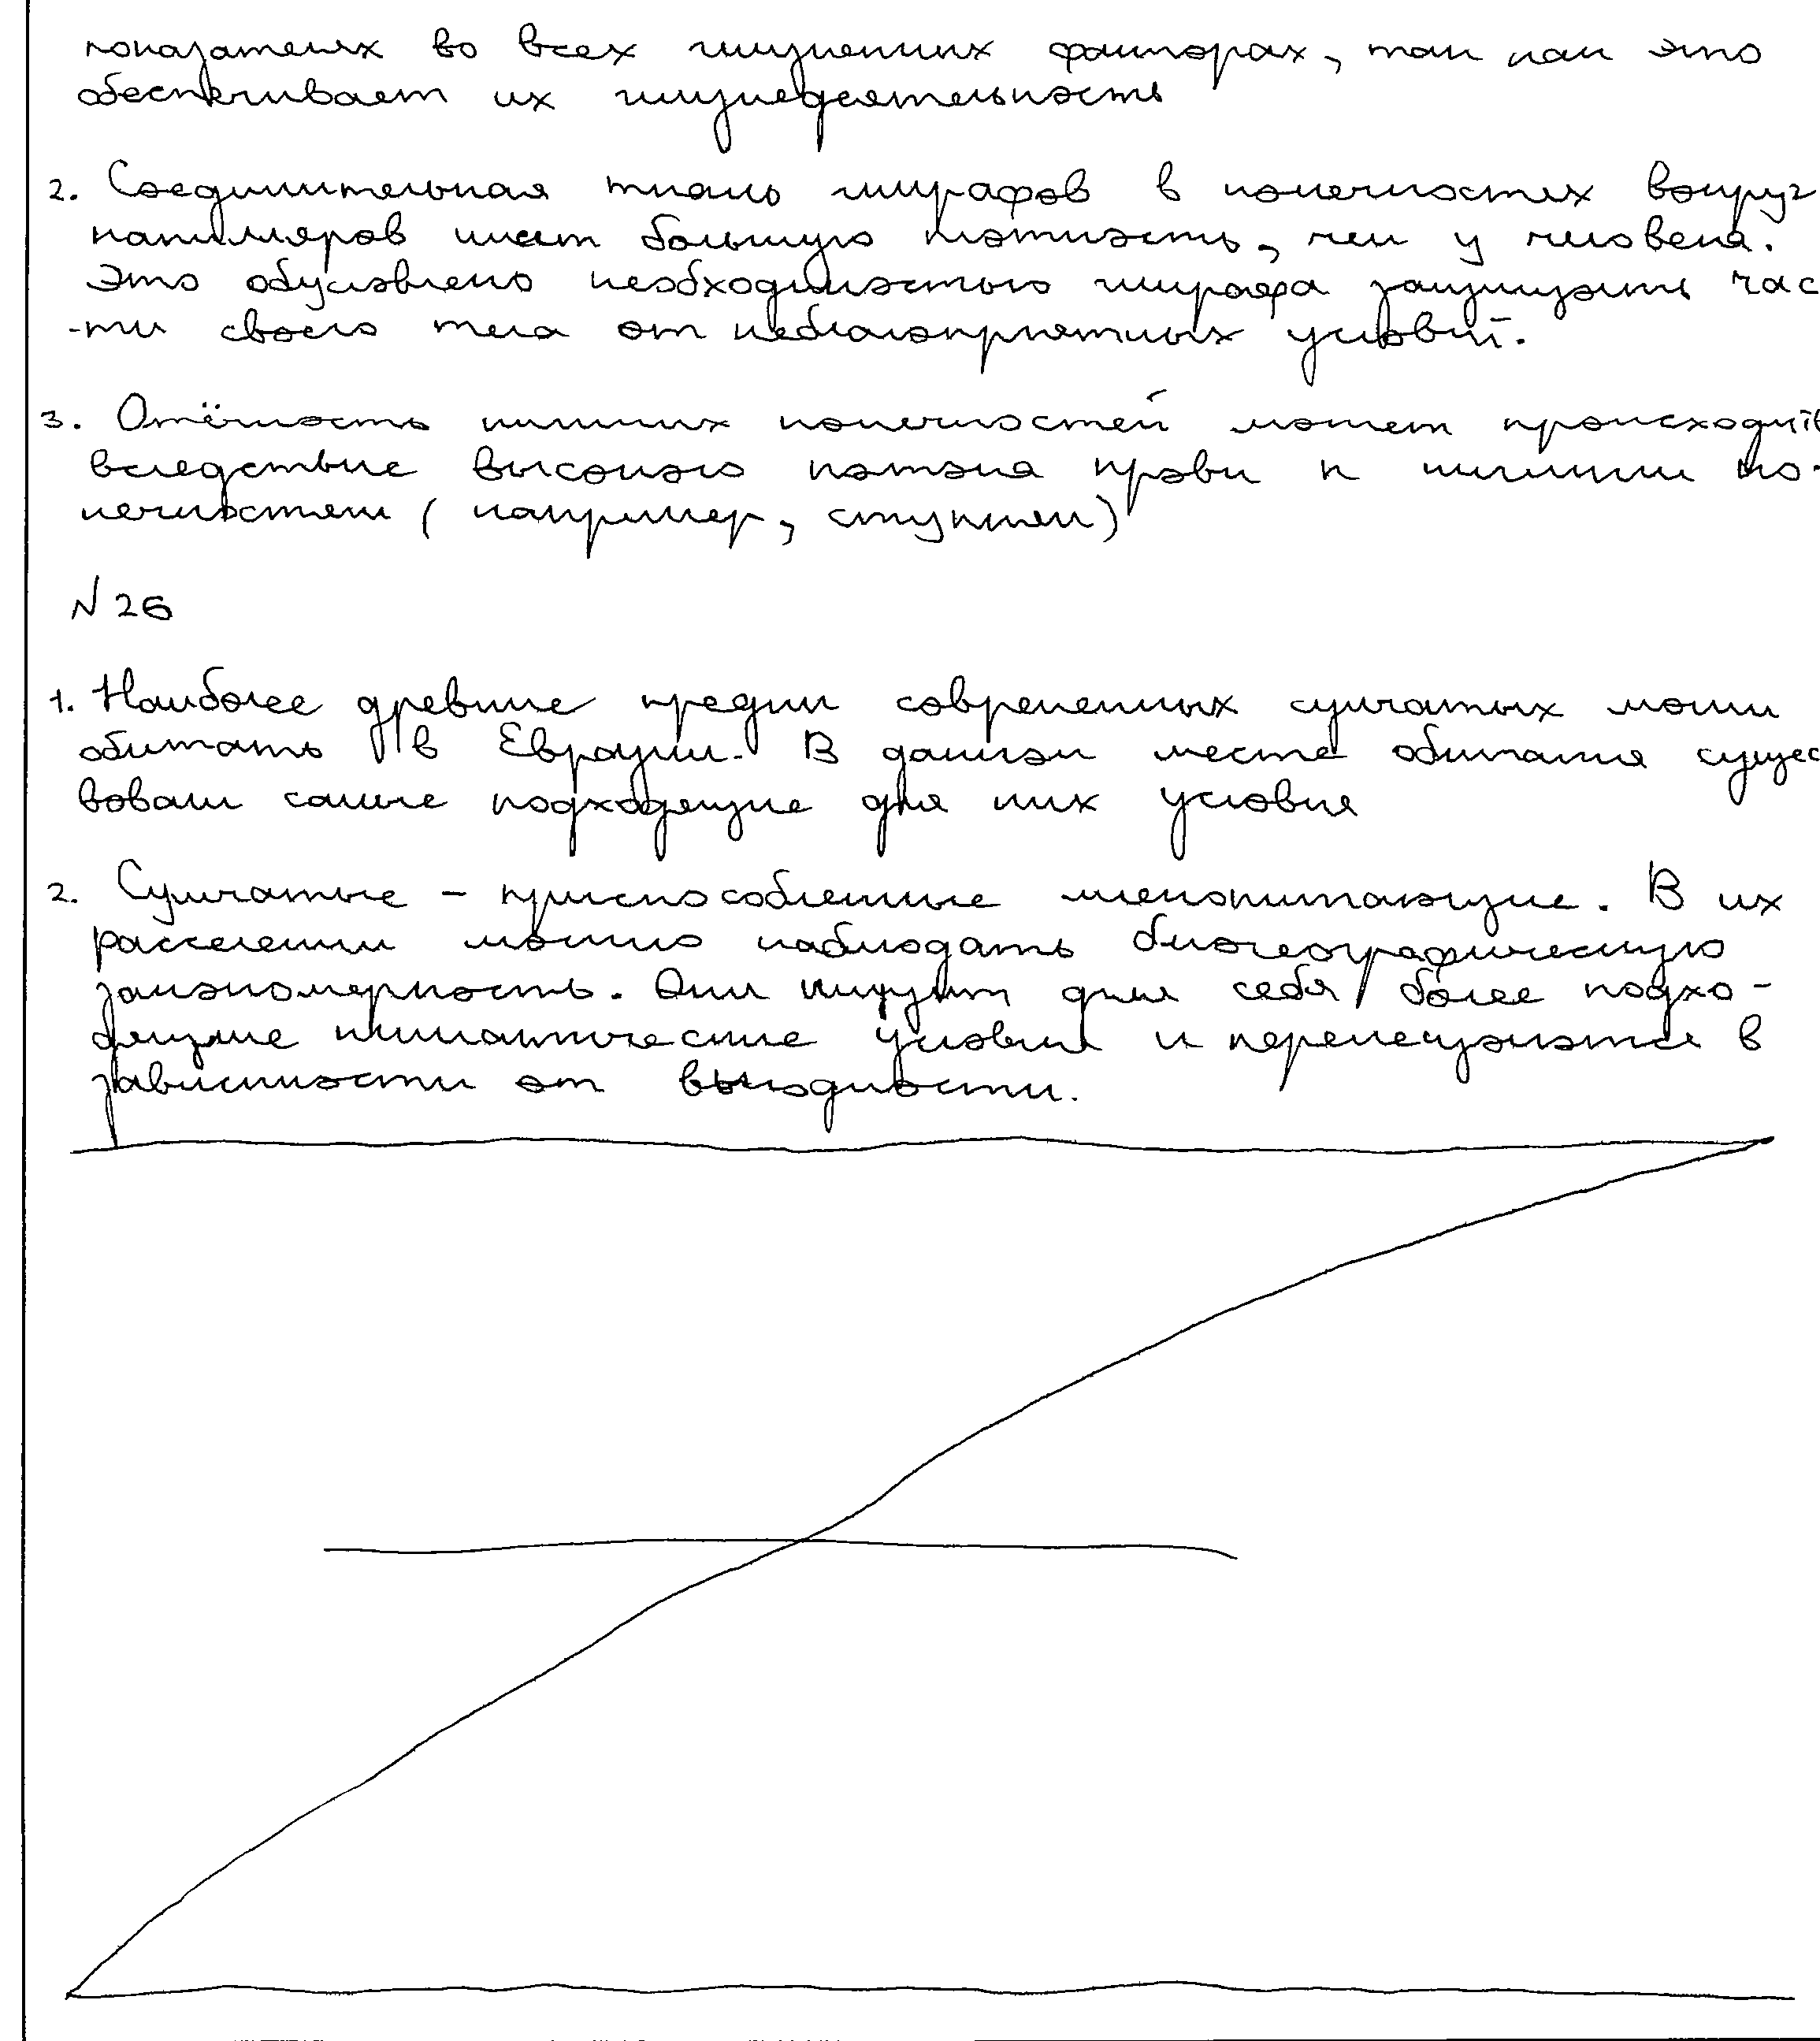 показателях во всех жизненных факторах, так как это
обеспечивает их жизнедеятельность
2. Соединительная ткань жирафов в конечностях вокруг
капилляров имеет большую плотность, чем у человека.
Это обусловлено необходимостью жирафа защищать час
-ти своего тела от неблагоприятных условий.
3. Отёчность нижних конечностей может происходить
вследствие высокого потока крови к нижним ко-
нечностям (например, ступням)
N 26
1. Наиболее древние предки современных сумчатых могли
обитать в Евразии. В данном месте обитания сущес
вовали самые подходящие для них условия
2. Сумчатые - приспособленные млекопитающие. В их
расселении можно наблюдать биогеографическую
закономерность. Они ищут для себя более подхо-
дящие климатические условия и перемещаются в
зависимости от выгодности.